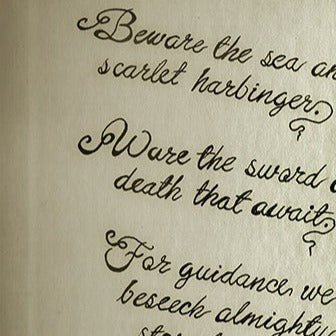 Beware the sea
scarlet harbinger.
Ware the sword
death that await
For guidance we
beseech almighty